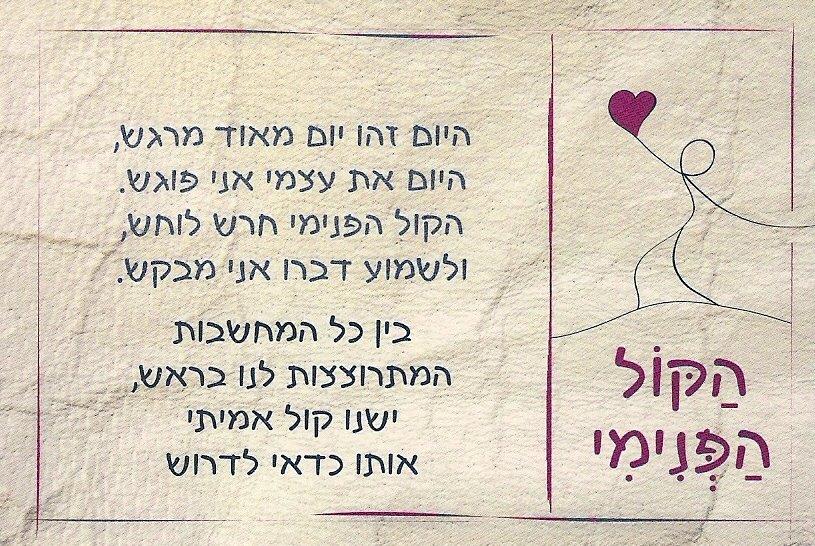 הַקּוֹל
הַפְּנִימִי
היום זהו יום מאוד מרגש,
היום את עצמי אני פוגש.
הקול הפנימי חרש לוחש,
ולשמוע דברו אני מבקש.
בין כל המחשבות
המתרוצצות לנו בראש,
ישנו קול אמיתי
אותו כדאי לדרוש